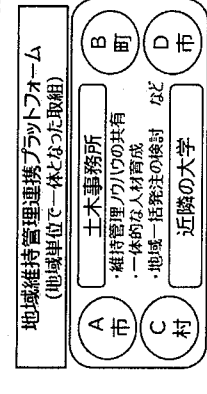 地域維持管理連携プラットフォーム
(地域単位で一体となった取組)
A
市
B
町
土木事務所
・維持管理ノウハウの共有
・一体的な人材育成
・地域一括発注の検討 など
近隣の大学
C
村
D
市